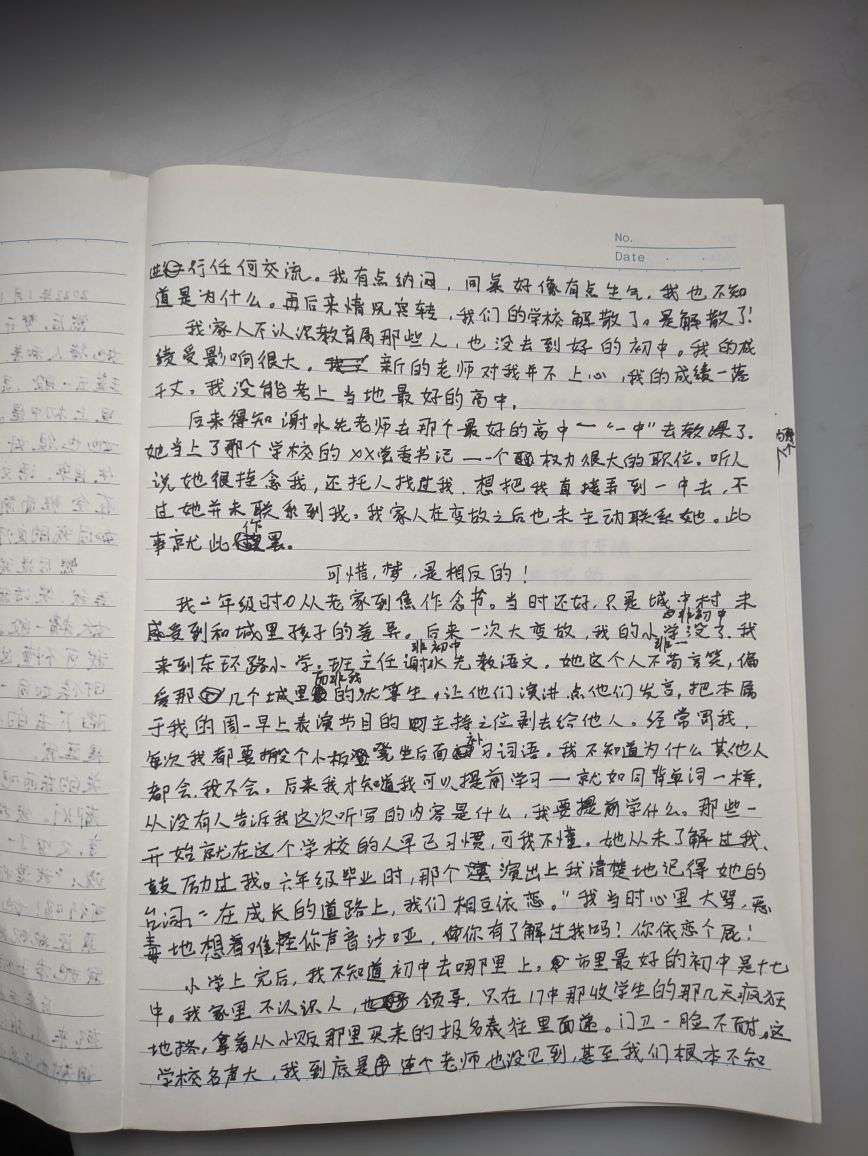 No.
Date
行任何交流。我有点纳闷，同桌好像有点生气，我也不知
道是为什么。再后来情况突转，我们的学校解散了。是解散了！
我家人不认识教育局那些人，也没去到好的初中。我的成
绩受影响很大。新的老师对我并不上心，我的成绩一落
千丈。我没能考上当地最好的高中。
后来得知谢水先老师去那个最好的高中——“一中”去教课了。
她当上了那个学校的XX党委书记——一个权力很大的职位。听人
说她很挂念我，还托人找过我，想把我直接弄到一中去，不
过她并未联系到我。我家人在变故之后也未主动联系她。此
事就此作罢。
可惜，梦，是相反的！
我二年级时从老家到焦作念书。当时还好，只是城中村，未
感受到和城里孩子的差异。后来一次大变故，我的小学没了，我
非初中
来到东环路小学。班主任谢水先教语文。她这个人不苟言笑，偏
非初中
而非我
爱那几个城里的优等生，让他们演讲点他们发言，把本属
于我的周一早上表演节目的主持之位剥去给他人。经常骂我，
每次我都要搬个小板凳坐后面补习词语。我不知道为什么其他人
都会，我不会。后来我才知道我可以提前学习——就如同背单词一样。
从没有人告诉我这次听写的内容是什么，我要提前学什么。那些一
开始就在这个学校的人早已习惯，可我不懂。她从未了解过我、
鼓励过我。六年级毕业时，那个演出上我清楚地记得她的
台词，“在成长的道路上，我们相互依恋。”我当时心里大骂，恶
毒地想着难怪你声音沙哑，你有了解过我吗？你依恋个屁！
小学上完后，我不知道初中去哪里上。市里最好的初中是十七
中。我家里不认识人，领导，只在17中那收学生的那几天疯狂
地挤，拿着从小贩那里买来的报名表往里面递。门卫一脸不耐。这
学校名声大，我到底是连个老师也没见到，甚至我们根本不知